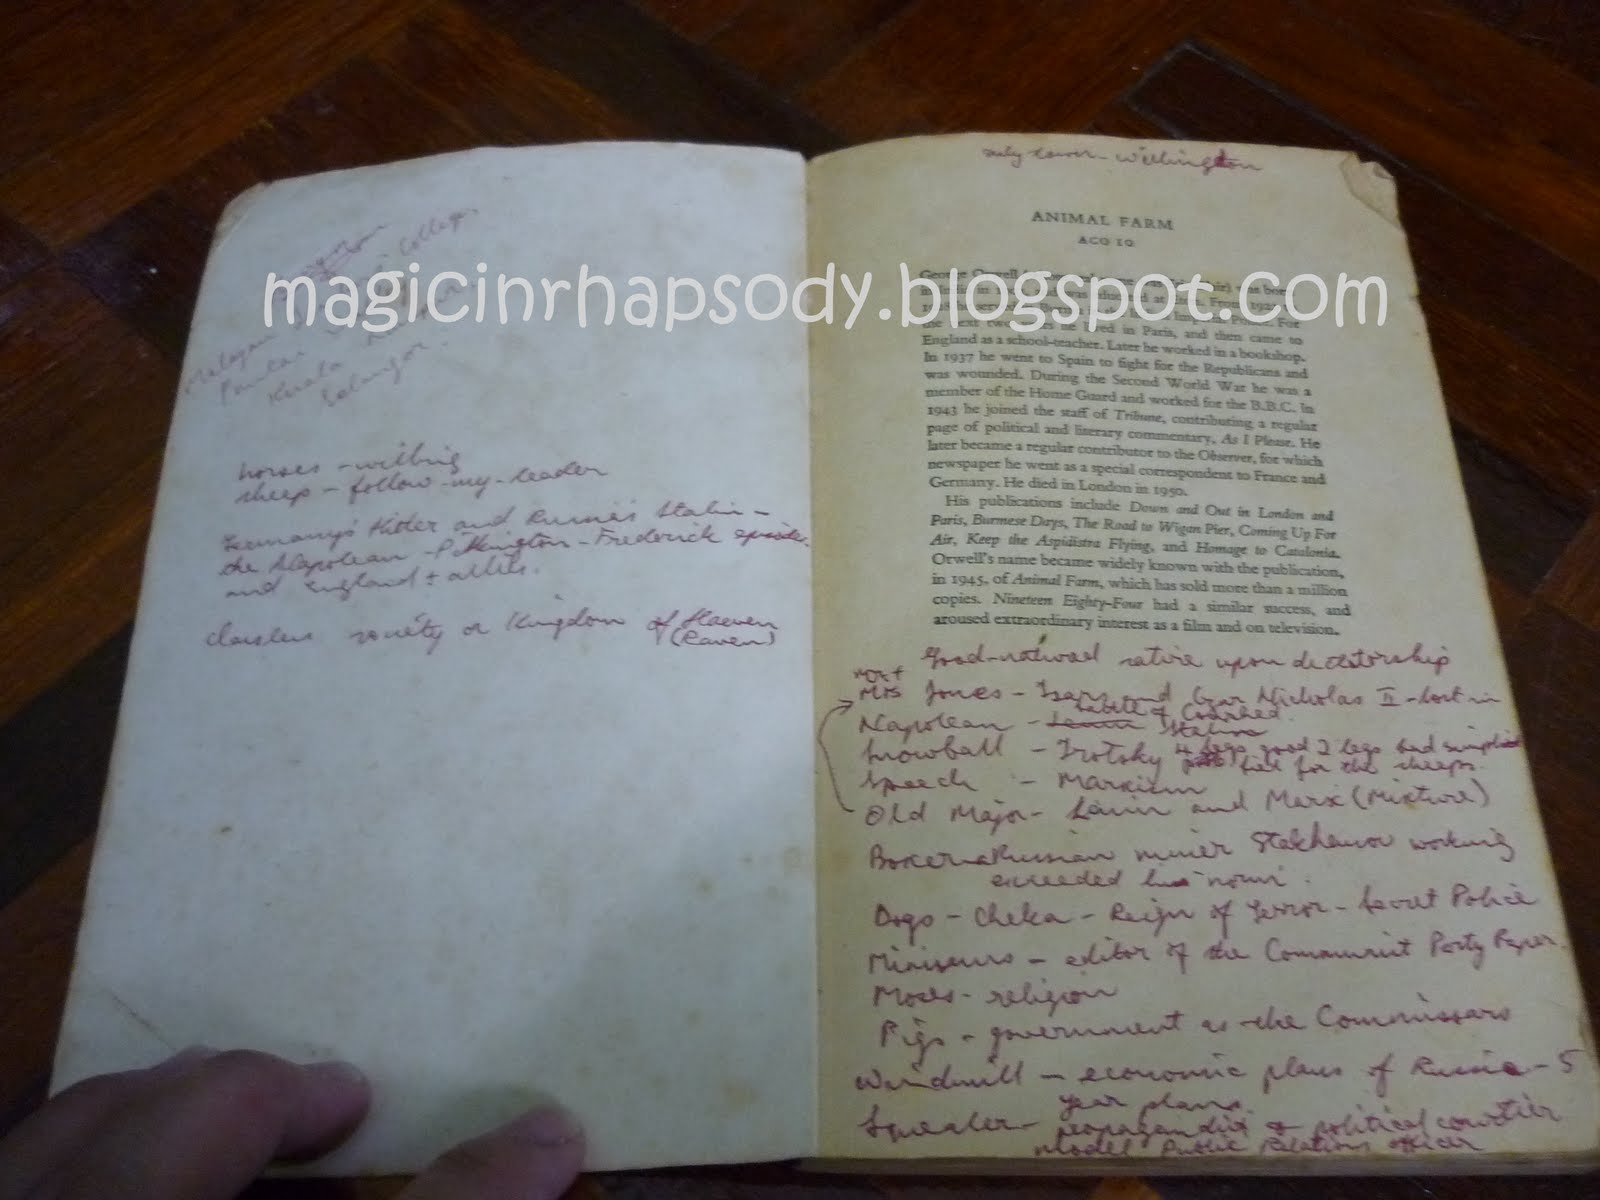 magicinrhapsody.blogspot.com
Malayan College
Pantai
Kuala
Selangor.
horses - willing
sheep - follow-my-leader
Germany's Hitler and Russia's Stalin -
the Napolean - Pilkington - Frederick episode.
and England + allies.
classless society or Kingdom of Heaven
(Raven)
- Willington
ANIMAL FARM
ACO 10
George Orwell
in India in
the next two in Paris, and then came to
England as a school-teacher. Later he worked in a bookshop.
In 1937 he went to Spain to fight for the Republicans and
was wounded. During the Second World War he was a
member of the Home Guard and worked for the B.B.C. In
1943 he joined the staff of Tribune, contributing a regular
page of political and literary commentary, As I Please. He
later became a regular contributor to the Observer, for which
newspaper he went as a special correspondent to France and
Germany. He died in London in 1950.
His publications include Down and Out in London and
Paris, Burmese Days, The Road to Wigan Pier, Coming Up For
Air, Keep the Aspidistra Flying, and Homage to Catalonia.
Orwell's name became widely known with the publication,
in 1945, of Animal Farm, which has sold more than a million
copies. Nineteen Eighty-Four had a similar success, and
aroused extraordinary interest as a film and on television.
Good-natured satire upon dictatorship
Mr +
Mrs Jones - Tsars and Czar Nicholas II - lost in
battle of Cowshed.
Napolean - Lenin Stalin
Snowball - Trotsky 4 legs good 2 legs bad
for the sheeps.
Speech - Marxism
Old Major - Lenin and Marx (Mixture)
Boxer - a Russian miner Stakhanov working
exceeded his norm.
Dogs - Cheka - Reign of Terror - Secret Police
Minimus - editor of the Communist Party Paper.
Moses - religion
Pigs - government as the Commissars
Windmill - economic plans of Russia - 5
year plans.
Squealer - propagandist & political courtier
model Public Relations officer